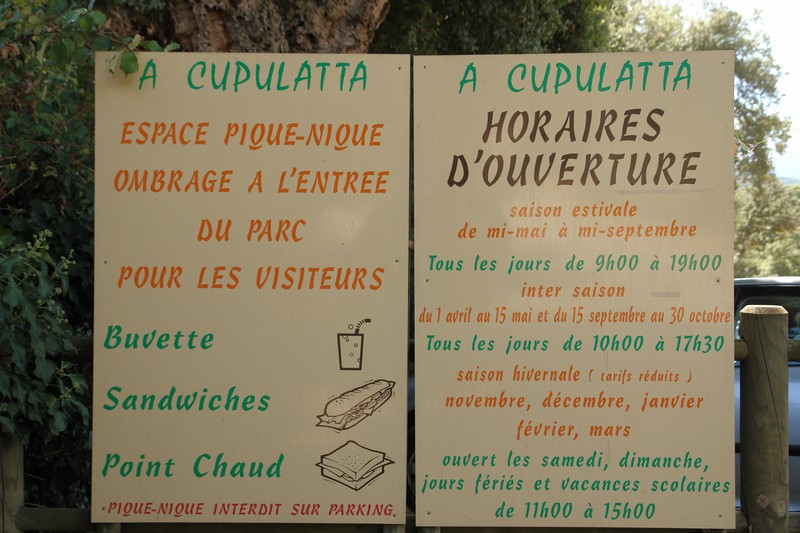 A CUPULATTA
ESPACE PIQUE-NIQUE
OMBRAGE A L'ENTREE
DU PARC
POUR LES VISITEURS
Buvette
Sandwiches
Point Chaud
PIQUE-NIQUE INTERDIT SUR PARKING
A CUPULATTA
HORAIRES
D'OUVERTURE
saison estivale
de mi-mai à mi-septembre
Tous les jours de 9h00 à 19h00
inter saison
du 1 avril au 15 mai et du 15 septembre au 30 octobre
Tous les jours de 10h00 à 17h30
saison hivernale ( tarifs réduits )
novembre, décembre, janvier
février, mars
ouvert les samedi, dimanche,
jours fériés et vacances scolaires
de 11h00 à 15h00